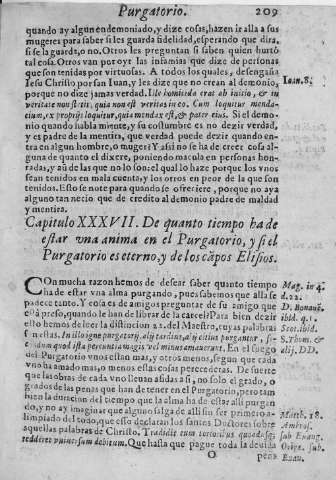 Purgatorio. 209
quando ay algun endemoniado, y dize cosas, hazen ir alla a sus
mugeres para saber si les guarda fidelidad, esperando que dira,
si se la guarda, o no. Otros les preguntan si saben quien hurtò
tal cosa. Otros van por oyr las infamias que dize de personas
que son tenidas por virtuosas. A todos los quales, desengaña
Iesu Christo por san Iuan, y les dize que no crean al demonio,
Ioan. 8.
porque no dize jamas verdad. Ille homicida erat ab initio, & in
veritate non stetit, quia non est veritas in eo. Cum loquitur menda-
cium, ex proprijs loquitur, quia mendax est, & pater eius. Si el demo-
nio quando habla miente, y su costumbre es no dezir verdad,
y es padre de la mentira, que verdad puede dezir quando en-
tra en algun hombre, o muger? Y assi no se ha de creer cosa al-
guna de quanto el dixere, poniendo macula en personas hon-
radas, y aũ de las que no lo son: el qual lo haze porque los vnos
sean tenidos en mala cuenta y los otros en peor de la que son
tenidos. Esto se note para quando se ofreciere, porque no aya
alguno tan necio que de credito al demonio padre de maldad
y mentira.
Capitulo XXXVII. De quanto tiempo ha de
estar vna anima en el Purgatorio, y si el
Purgatorio es eterno, y de los cãpos Elisios.
COn mucha razon hemos de desear saber quanto tiempo
ha de estar vna alma purgando, pues sabemos que alla se
padece tanto. Y cosa es de amigos preguntar de su amigo que
està preso, quando le han de librar de la carcel? Para bien dezir
esto hemos de leer la distincion 22. del Maestro, cuyas palabras
Mag. in 4.
d. 22.
D. Bonauẽ.
ibid. q. 1.
Scot. ibid.
S. Thom. &
alij. DD.
son estas. In illo igne purgatorij, alij tardius, alij citius purgantur, se-
cundum quod ista pereuntia magis vel minus amauerunt. En el fuego
del Purgatorio vnos estan mas, y otros menos, segun que cada
vno ha amado mas, o menos estas cosas perecederas. De suerte
que las obras de cada vno lleuan assidas a si, no solo el grado, o
grados de las penas que han de tener en el Purgatorio, pero tam
bien la duracion del tiempo que la alma ha de estar alli purgan
do, y no ay imaginar que alguno salga de alli sin ser primero a-
limpiado del todo, que esso declaran los santos Doctores sobre
aquellas palabras de Christo. Tradidit eum tortoribus quoadusq;
redderet vniuersum debitum. Que hasta que pague toda la deuida
Matth. 18.
Ambros.
sub Euang.
Orige. sub
Euan.
O pena